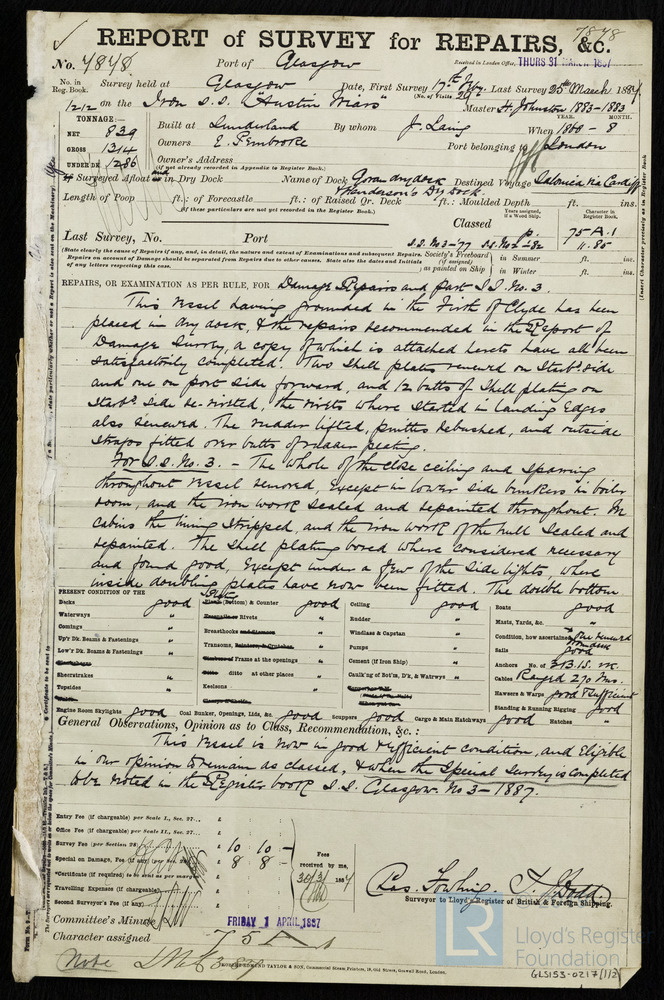 7878
REPORT of SURVEY for REPAIRS, &c.
No. 7878. Port of Glasgow Received in London Office, THURS 31 MARCH 1887
No. in Reg. Book. Survey held at Glasgow Date, First Survey 17th Feby. Last Survey 25th March 1887
(No. of Visits 29)
1212 on the Iron S.S. "Austin Friars" Master H. Johnston 1883-1883
TONNAGE:— YEAR. MONTH.
NET 839 Built at Sunderland By whom J. Laing When 1860 - 8
GROSS 1314 Owners E. Pembroke Port belonging to London
UNDER DK 1286 Owner's Address
(if not already recorded in Appendix to Register Book.)
If Surveyed Afloat and in Dry Dock Name of Dock Govan dry dock Destined Voyage Salonica via Cardiff
& Henderson's Dry Dock.
Length of Poop ft.: of Forecastle ft.: of Raised Qr. Deck ft.: Moulded Depth ft. ins.
(If these particulars are not yet recorded in the Register Book.)
Years assigned, if a Wood Ship. Character in Register Book.
Classed 75 A.1
Last Survey, No. Port S.S. No 3-77 S.S. No 2-82 11.85
(State clearly the cause of Repairs if any, and, in detail, the nature and extent of Examinations and subsequent Repairs.
Repairs on account of Damage should be separated from Repairs due to other causes. State also the dates and Initials of any letters respecting this case.
Society's Freeboard (if assigned) as painted on Ship in Summer ft. ins.
in Winter ft. ins.
REPAIRS, OR EXAMINATION AS PER RULE, FOR Damage Repairs and part S.S. No. 3.
This Vessel having grounded in the Firth of Clyde has been
placed in dry dock, & the repairs recommended in the Report of
Damage Survey, a copy of which is attached hereto have all been
satisfactorily completed. Two Shell plates renewed on Starbd side
and one on port side forward, and 12 butts of Shell plating on
Starbd side re-riveted, the rivets where started in landing edges
also renewed. The rudder lifted, pintles rebushed, and outside
straps fitted over butts of rudder plating.
For S.S. No. 3. - The whole of the close ceiling and sparring
throughout vessel removed, except in lower side bunkers in boiler
room, and the iron work scaled and repainted throughout. In
cabins the lining stripped, and the iron work of the hull scaled and
repainted. The shell plating bored where considered necessary
and found good, except under a few of the side lights, where
inside doubling plates have now been fitted. The double bottom
PRESENT CONDITION OF THE
Decks good
Waterways "
Comings "
Up'r Dk. Beams & Fastenings "
Low'r Dk. Beams & Fastenings "
Sheerstrakes "
Topsides "
Plank (Bottom) & Counter good
Treenails or Rivets "
Breasthooks and Pointers "
Transoms, Pointers, & Crutches "
Frame at the openings "
ditto at other places "
Keelsons "
Ceiling good
Rudder "
Windlass & Capstan "
Pumps "
Cement (if Iron Ship) "
Caulk'ng of Bot'm, D'k, & Watrwys "
Boats good
Masts, Yards, &c. "
Condition, how ascertained
Sails good
Anchors No. of 3B.1S.
Cables Ranged 270 fms.
Hawsers & Warps good & sufficient
Standing & Running Rigging good
Engine Room Skylights good Coal Bunker, Openings, Lids, &c. good Scuppers good Cargo & Main Hatchways good Hatches "
General Observations, Opinion as to Class, Recommendation, &c.:
This Vessel is now in good & efficient condition, and Eligible
in our opinion to remain as classed, & when the Special Survey is completed
to be noted in the Register book S.S. Glasgow. No 3-1887.
Entry Fee (if chargeable) per Scale I., Sec. 27... £
Office Fee (if chargeable) per Scale II., Sec. 27... £
Survey Fee (per Section 28) £ 10 : 10 : -
Special on Damage, Fee (if any) (per Sec. 28) £ 8 : 8 : -
*Certificate (if required) to be sent as per margin £
Travelling Expenses (if chargeable) £
Second Surveyor's Fee (if any) £
Fees received by me, 30/3/1887
Surveyor to Lloyd's Register of British & Foreign Shipping.
Committee's Minute FRIDAY 1 APRIL 1887
Character assigned 75 A 1
Note
ROBERT EDMUND TAYLOR & SON, Commercial Steam Printers, 19, Old Street, Goswell Road, London.
LR
Lloyd's Register
Foundation
GLS153-0217(1/2)